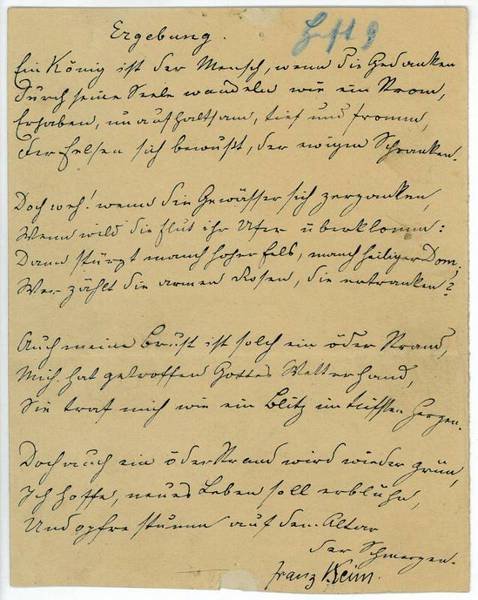 Ergebung.
Heft 9
Ein König ist der Mensch, wenn die Gedanken
Durch seine Seele wandeln wie ein Strom,
Erhaben, unaufhaltsam, tief und fromm,
Der Felsen sich bewußt, der ewigen Schranken.
Doch weh! wenn die Gewässer sich zerzanken,
Wenn wild die Flut ihr Ufer überklomm:
Dann stürzt manch hoher Fels, manch heiliger Dom,
Wer zählt die armen Rosen, die ertranken?
Auch meine Brust ist solch ein öder Strand,
Mich hat getroffen Gottes Wetterhand,
Sie traf mich wie ein Blitz im tiefsten Herzen.
Doch auch ein öder Strand wird wieder grün,
Ich hoffe, neues Leben soll erblühn,
Und opfre stumm auf dem Altar
der Schmerzen.
Franz Keim.